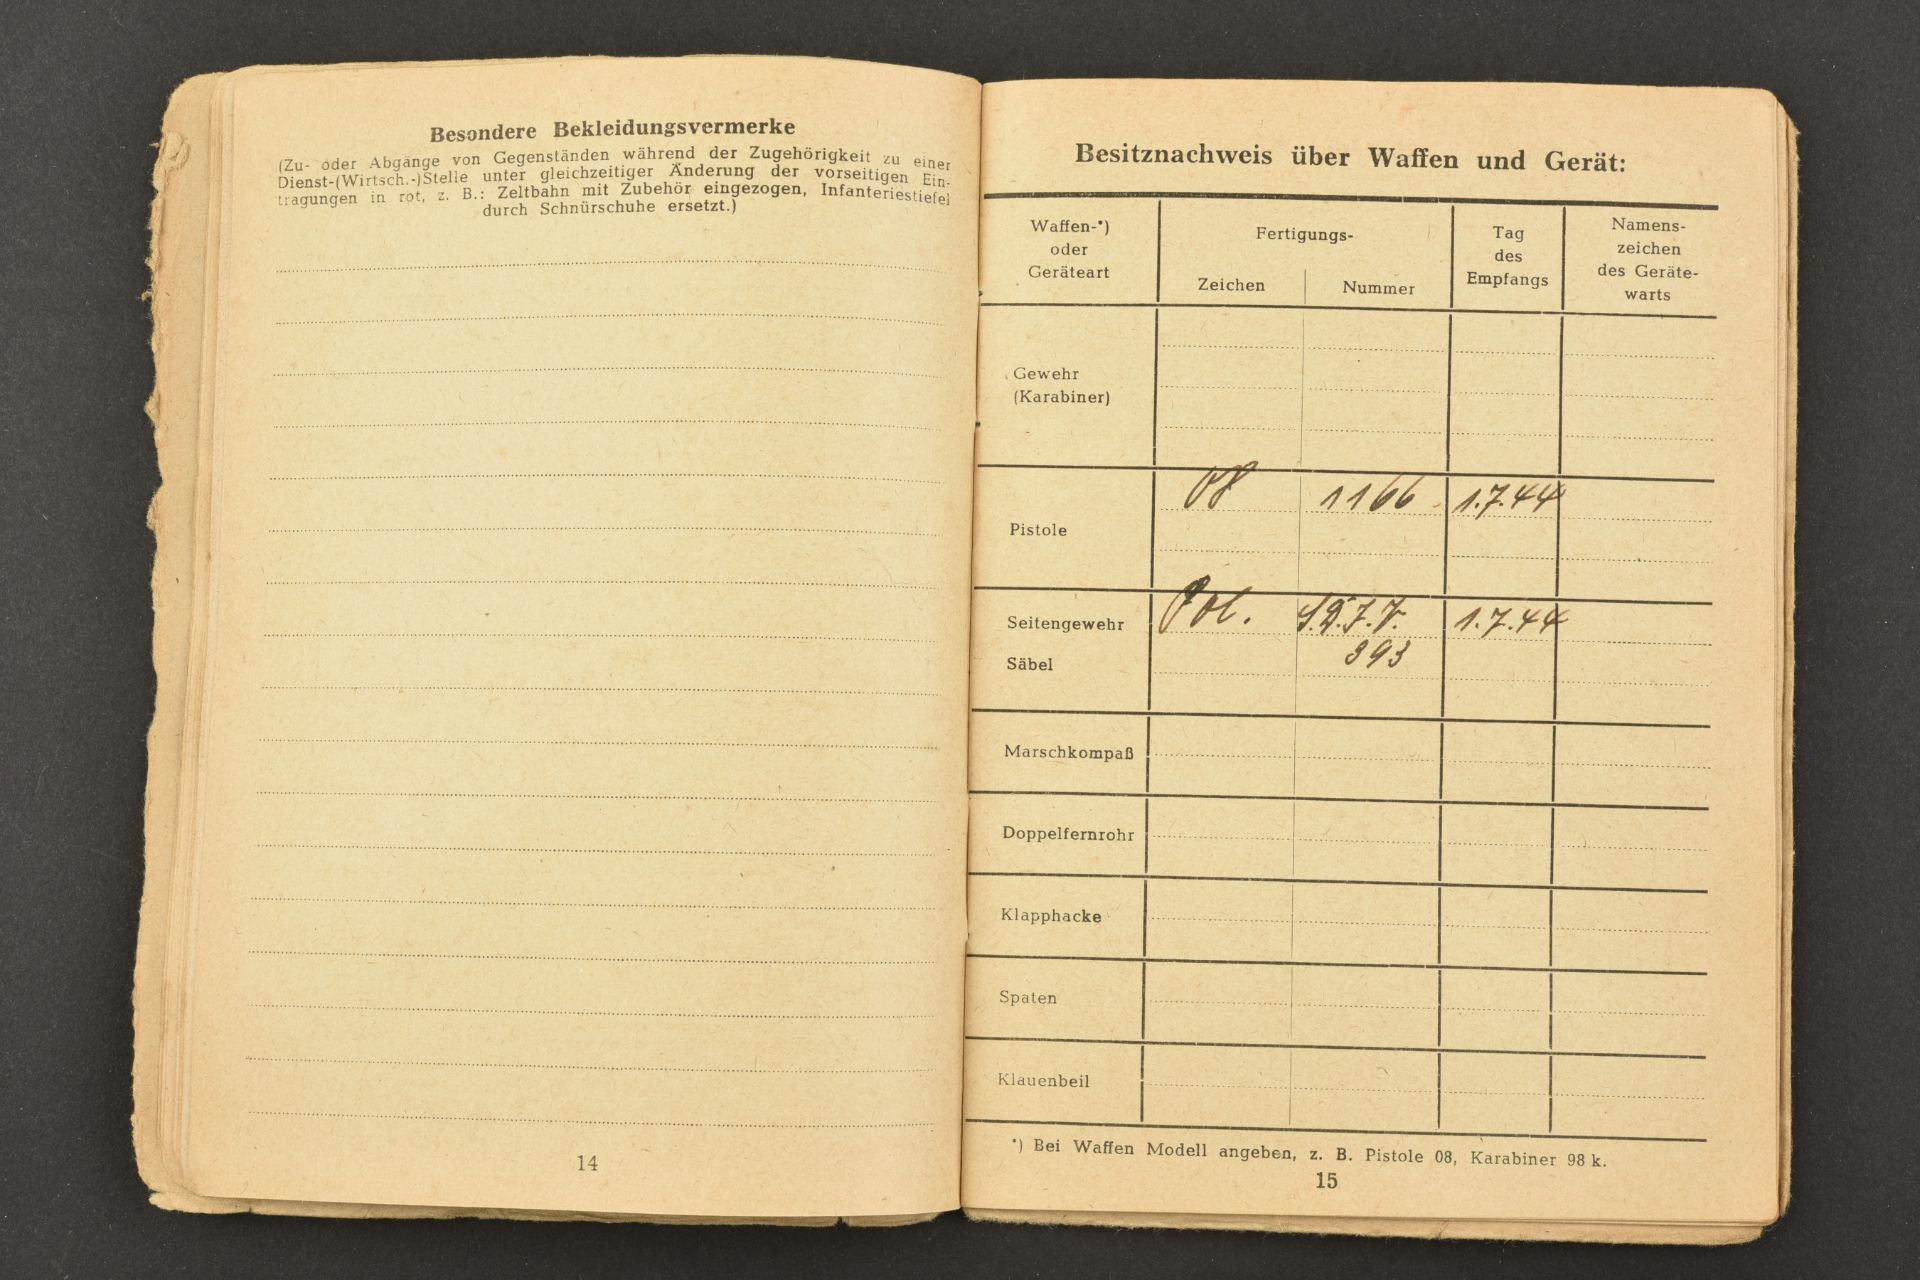 Besondere Bekleidungsvermerke
(Zu- oder Abgänge von Gegenständen während der Zugehörigkeit zu einer
Dienst-(Wirtsch.-)Stelle unter gleichzeitiger Änderung der vorseitigen Ein-
tragungen in rot, z. B.: Zeltbahn mit Zubehör eingezogen, Infanteriestiefel
durch Schnürschuhe ersetzt.)
14
Besitznachweis über Waffen und Gerät:
Waffen-*)
oder
Geräteart
Fertigungs-
Zeichen
Nummer
Tag
des
Empfangs
Namens-
zeichen
des Geräte-
warts
Gewehr
(Karabiner)
Pistole
08 1166 1.7.44
Seitengewehr
Pol. S.D.J.V. 1.7.44
Säbel
393
Marschkompaß
Doppelfernrohr
Klapphacke
Spaten
Klauenbeil
*) Bei Waffen Modell angeben, z. B. Pistole 08, Karabiner 98 k.
15